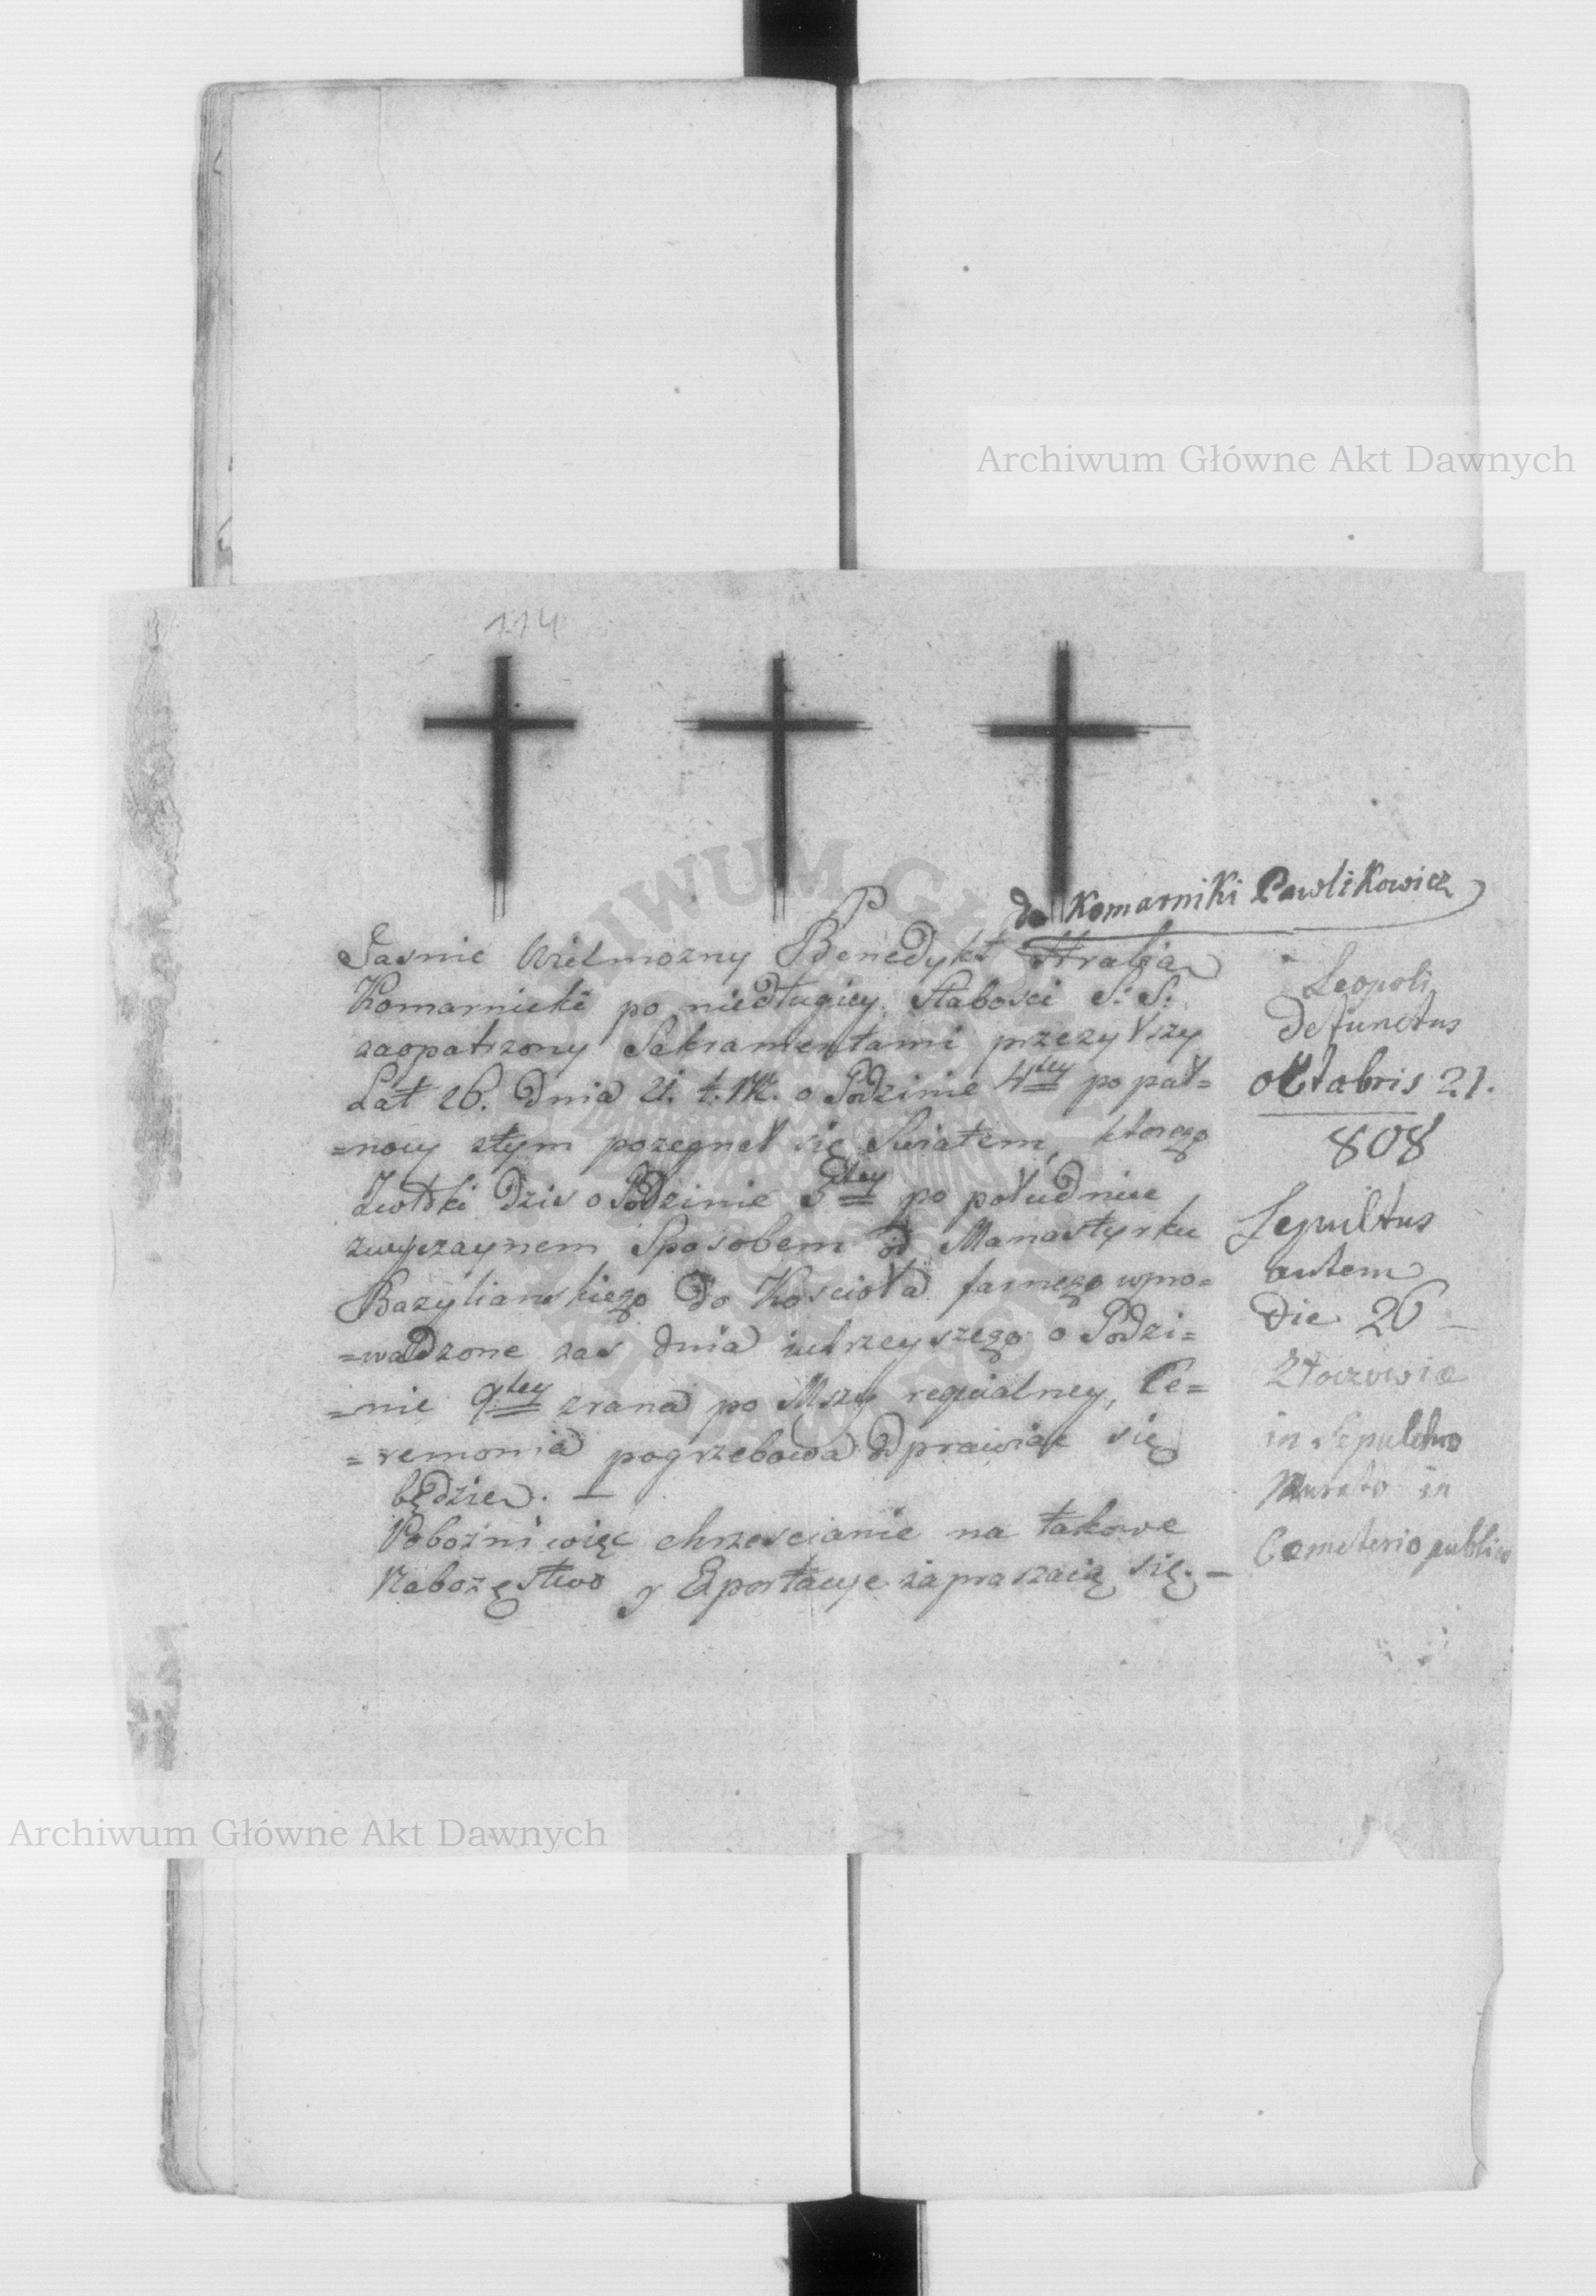 114
Archiwum Główne Akt Dawnych
de Komarniki Pawlikowicz
Jasnie Wielmozny Benedykt Hrabia
Komarnicki po niedługiey Słabosci S: S:
zaopatrzony Sakramentami przezywszy
Lat 26. dnia 21. t. o Godzinie 4tey popoł=
=nocy stym pozegnał się Swiatem, ktorego
Zwłoki dzis o Godzinie 3tey po południu
zwyczaynem Sposobem od Manastyrku
Bazylianskiego do Koscioła farnego wpro=
=wadzone zas dnia iutrzeyszego o Godzi=
=nie 9tey zrana po Mszy Ce=
=remonia pogrzebowa odprawiac się
będzie. —
Pobożni więc chrzescianie na takowe
Nabozęstwo y Exportacye zapraszaią się. —
Leopoli
defunctus
Octobris 21.
808
Sepultus
autem
die 26 —
Złoczoviæ
in Sepulchro
Murato in
Cæmeterio publico
Archiwum Główne Akt Dawnych